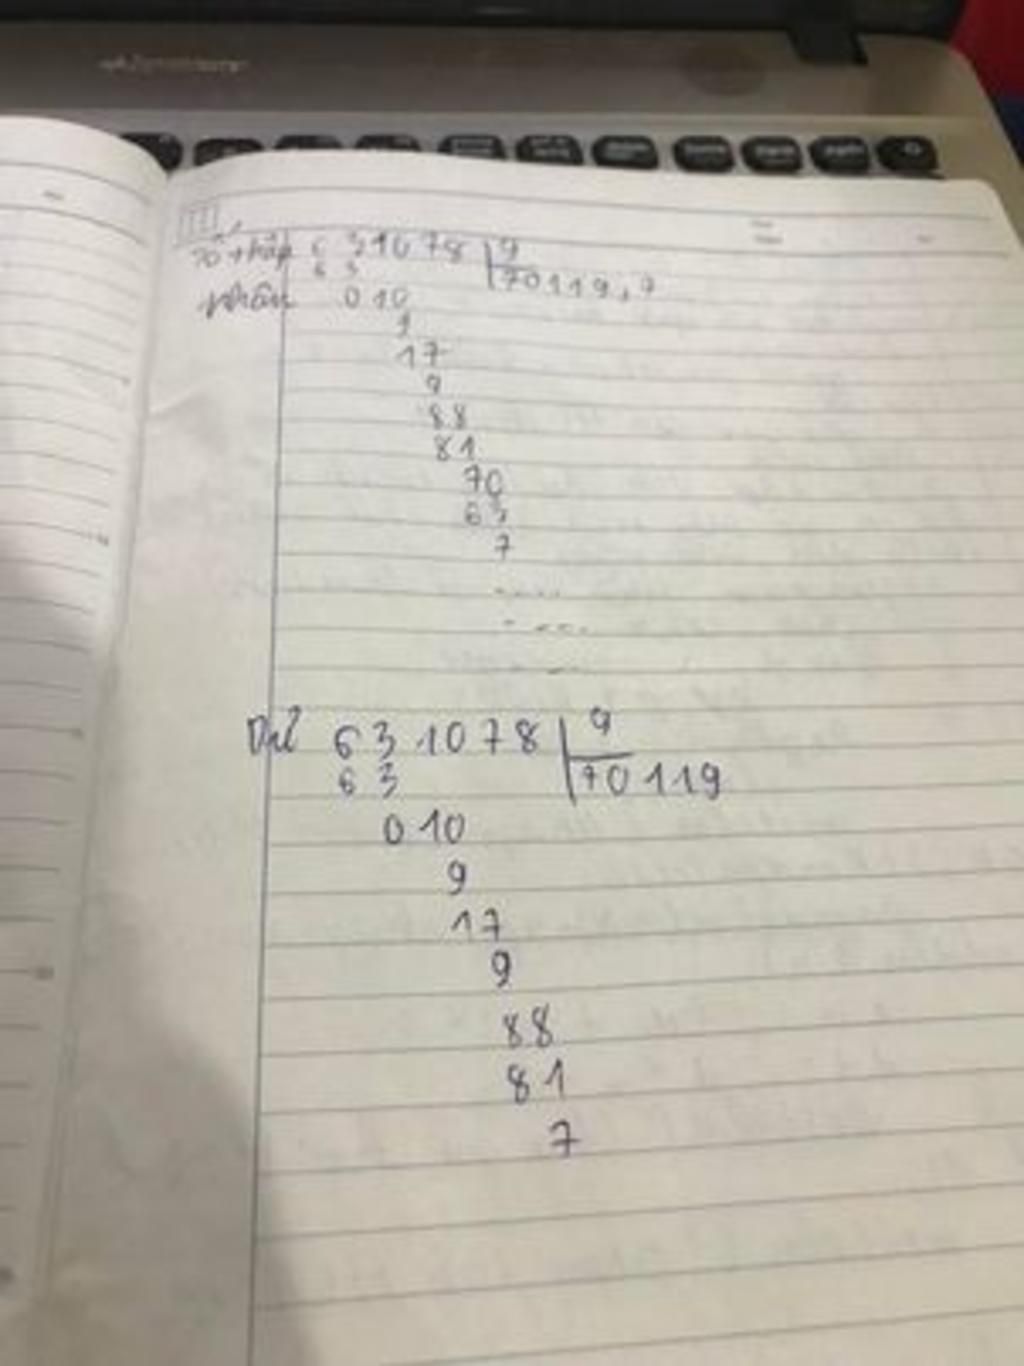 số thập 6 31078 9
6 3 70119,7
phân 0 10
9
17
9
88
81
70
63
7
Dư 63 10 78 9
6 3 70119
0 10
9
17
9
88
81
7